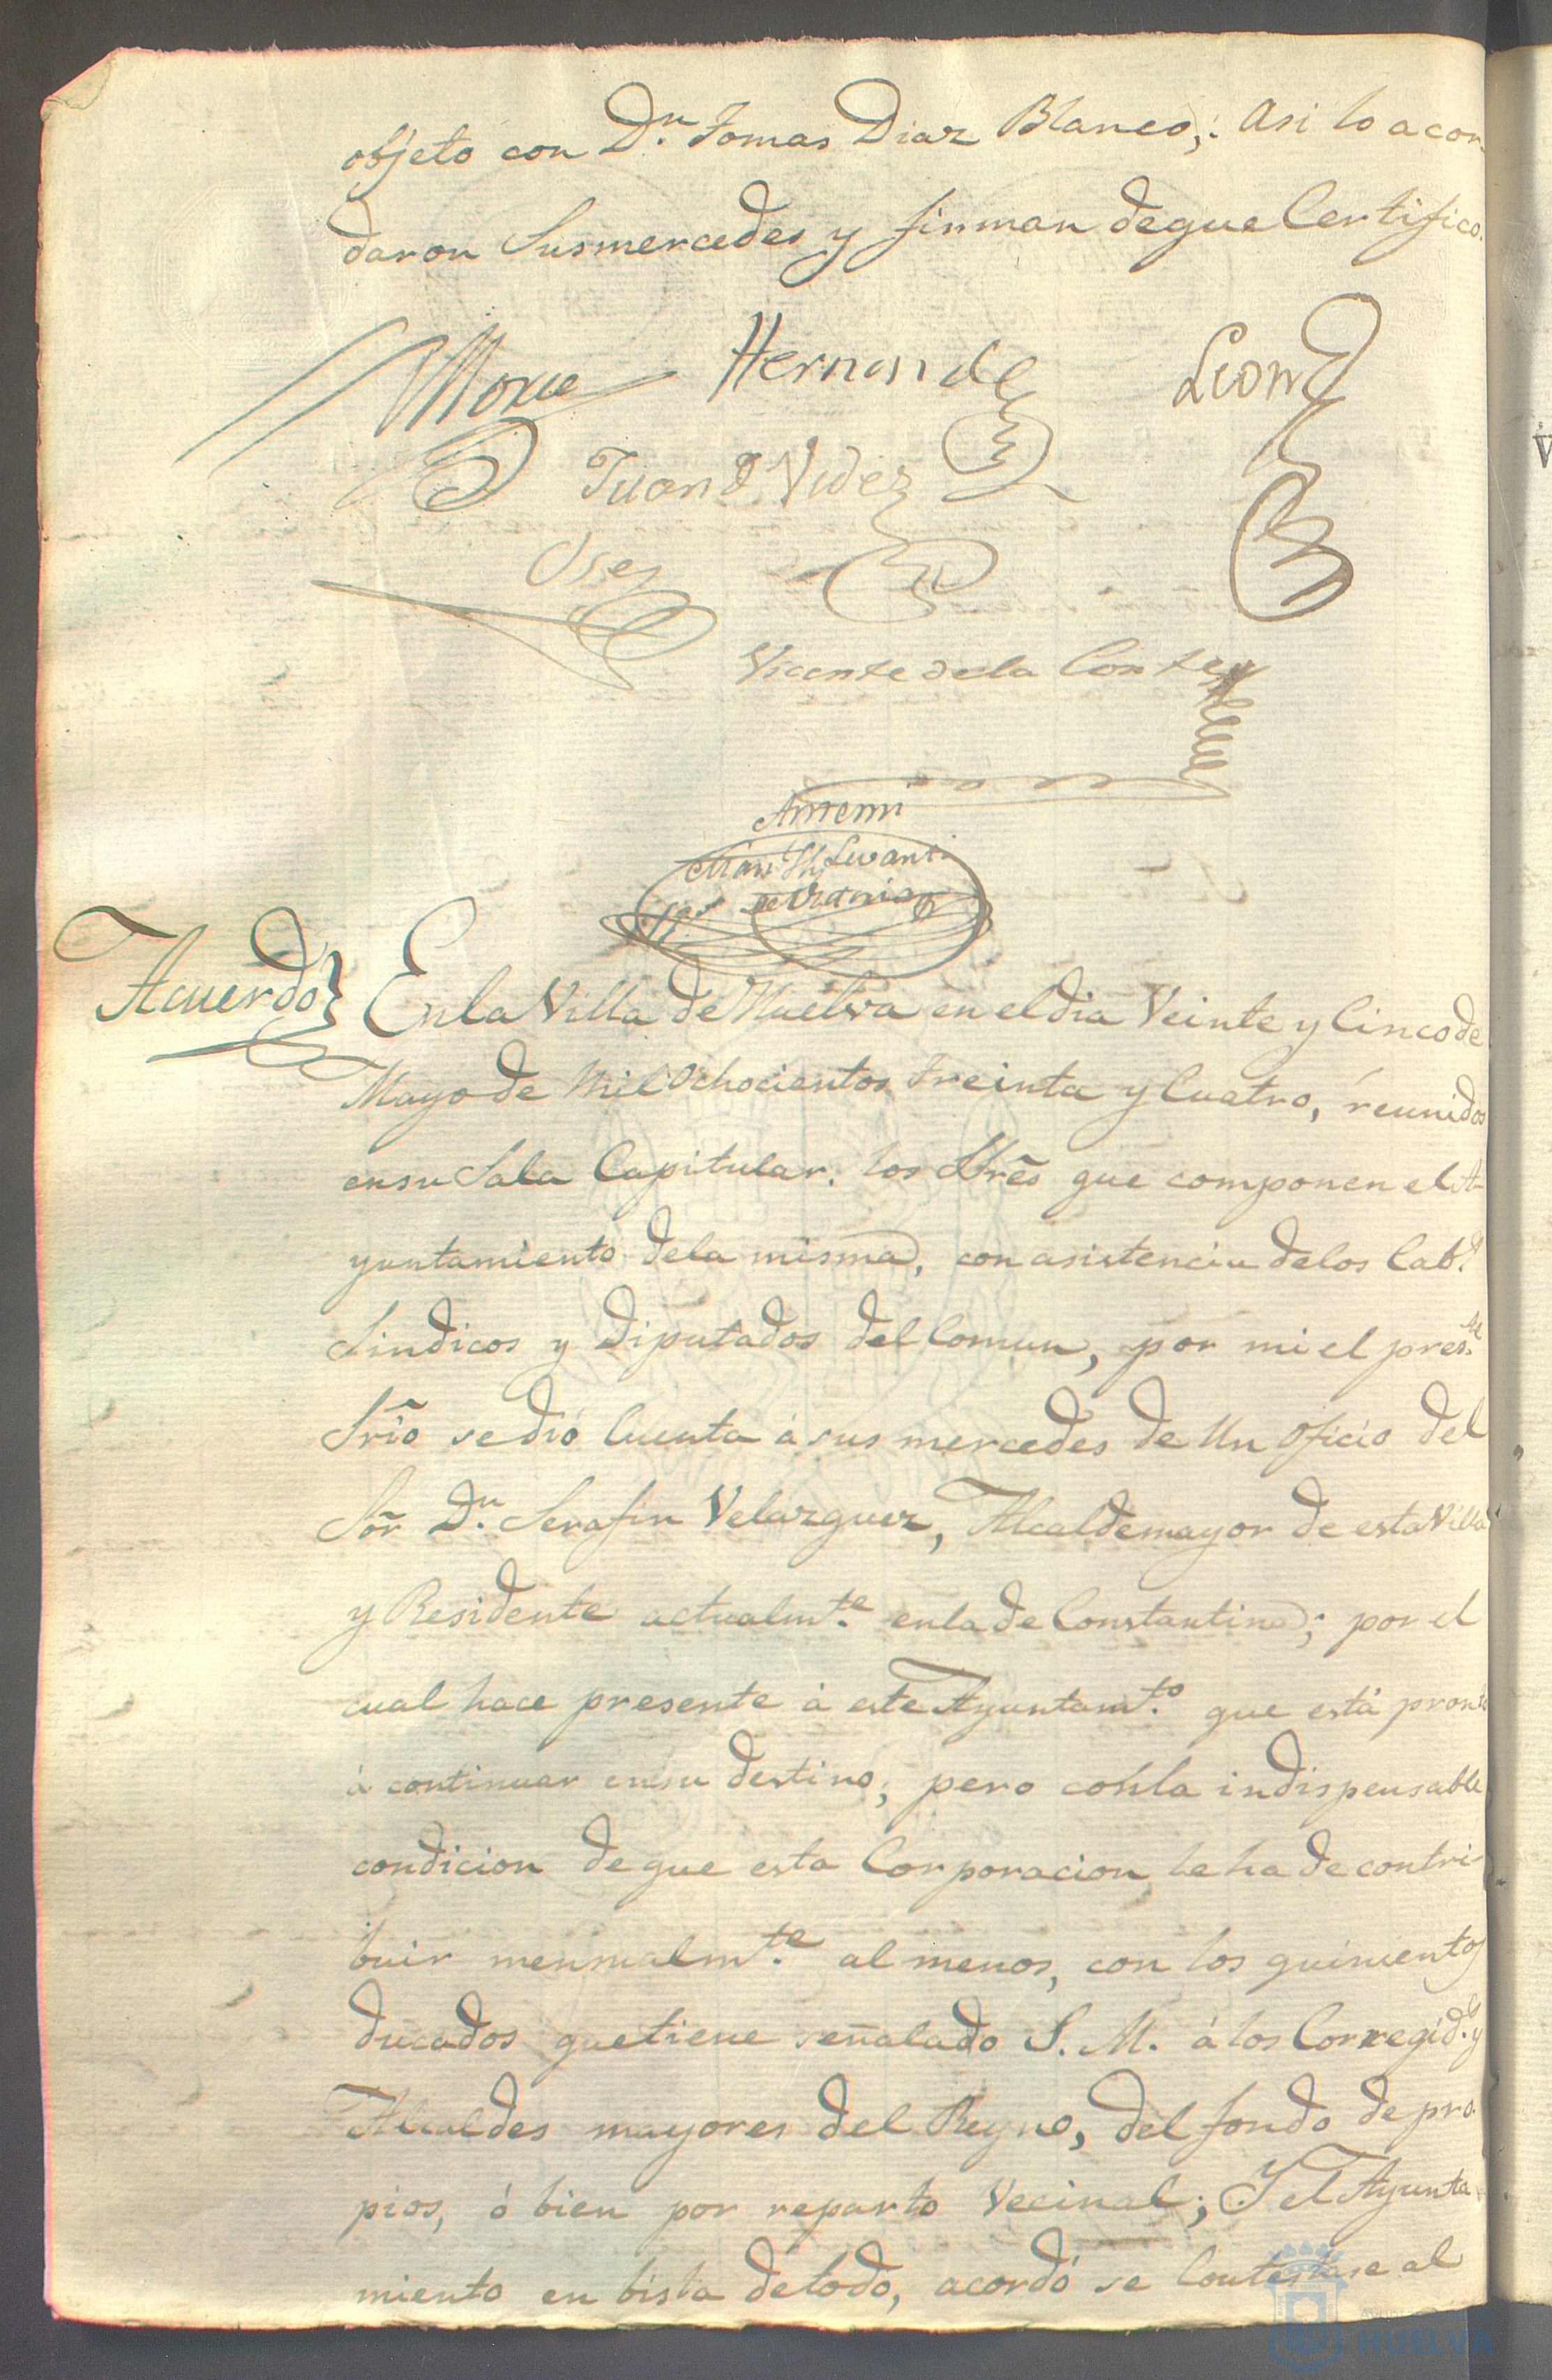 objeto con Dn. Tomas Diaz Blanco,: Asi lo acor-
daron Susmercedes y firman deque Certifico.
Hernande
Leon
Juan Videz
Vicente dela Corte
Antemi
Acuerdo} En la Villa de Huelva en el dia Veinte y Cinco de
Mayo de Mil Ochocientos treinta y Cuatro, reunidos
ensu Sala Capitular. los SSres que componen el A-
yuntamiento dela misma, con asistencia delos Cab.s
Sindicos y Diputados del Comun, por mi el pres.te
Srio se dió Cuenta á sus mercedes de Un Oficio del
Sor Dn. Serafin Velazquez, Alcaldemayor de esta Villa
y Residente actualmte. enla de Constantina; por el
cual hace presente á este Ayuntamto. que está pronto
á continuar ensu destino; pero conla indispensable
condicion de que esta Corporacion le ha de contri-
buir mensualmte. al menos, con los quinientos
ducados quetiene señalado S. M. á los Corregid.s y
Alcaldes mayores del Reyno, del fondo de pro-
pios, ó bien por reparto Vecinal; Y el Ayunta-
miento en bista detodo, acordó se Contestase al
HUELVA